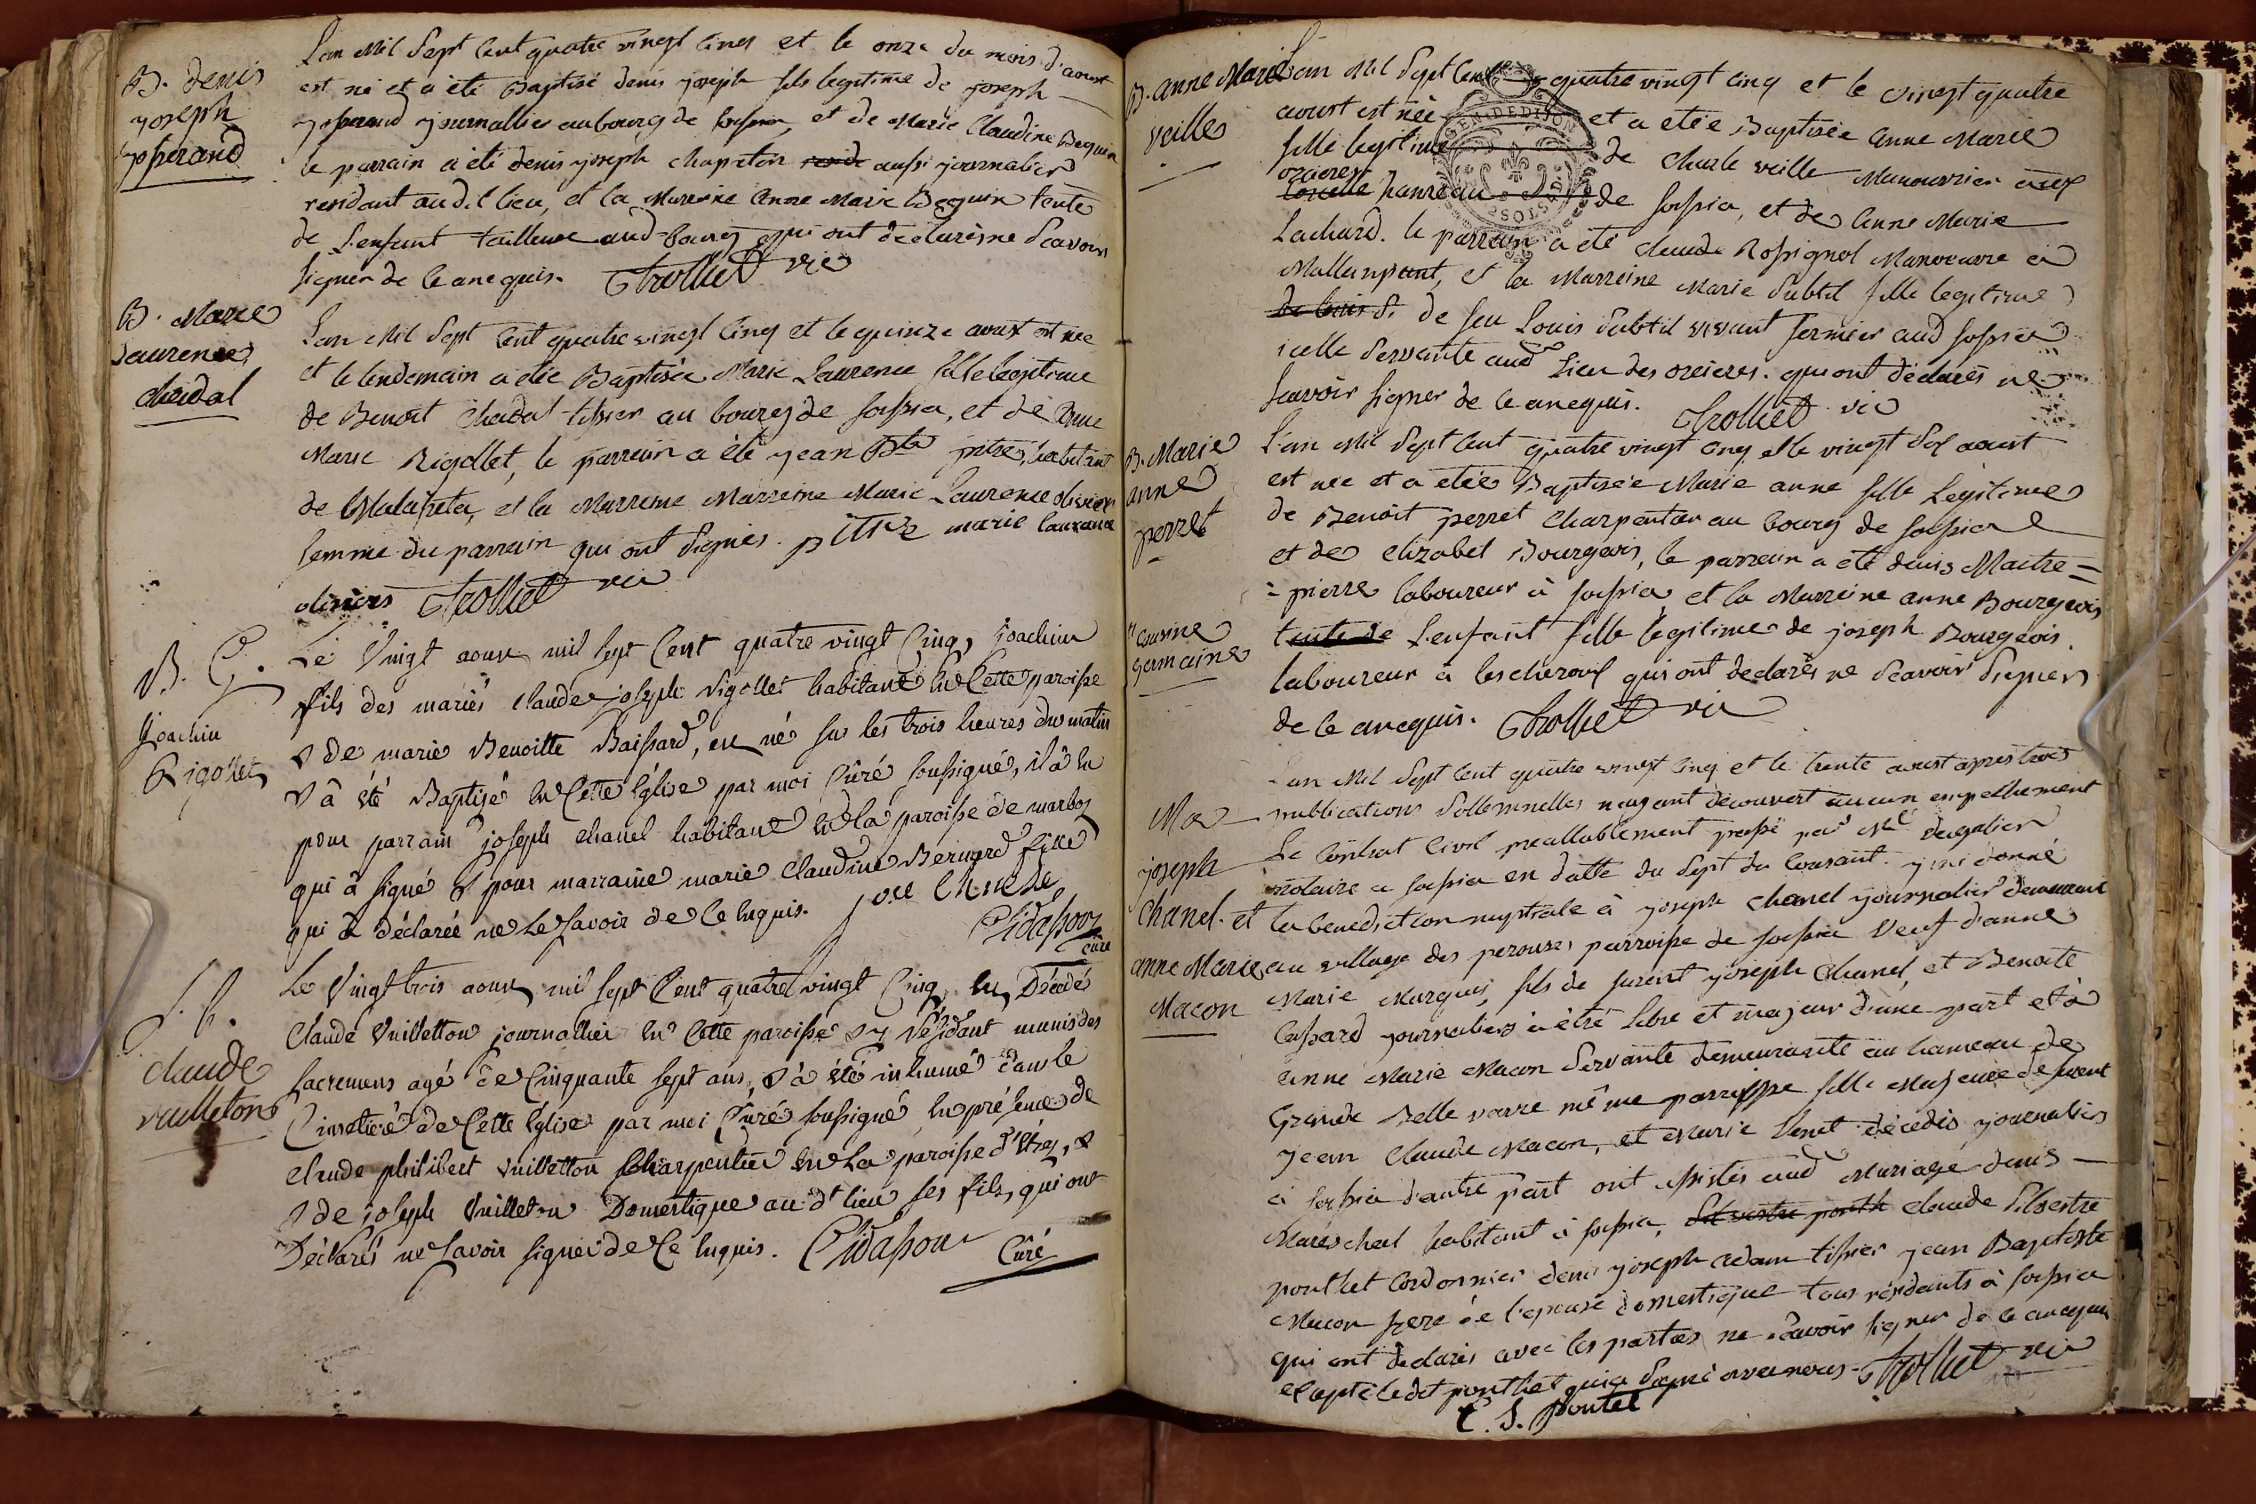 B. denis
joseph
josserand
L'an Mil Sept Cent quatre vingt Cinq et le onze du mois d'aoust
est né et a été Baptisé denis joseph fils legitime de joseph
josserand journallier au bourg de et de Marie Claudine Bequin
le parrain a été denis joseph chapeton aussi journalier
residant aud.t lieu, et la Marreine Anne Marie Bequin tente
de L'enfant tailleuse aud bourg qui ont declarés ne Scavoir
signer de ce anequis. Trolliet vic
B. Marie
Laurence
chadal
L'an Mil Sept Cent quatre vingt Cinq et le quinze aoust est née
et le lendemain a étée Baptisée Marie Laurence fille legitime
de Benoit Chadal tissier au bourg de et de Anne
Marie Rigollet, le parrein a été jean Bte pitre, habitant
de et la Marreine Marreine Marie Laurence oliviers
femme du parrein qui ont Signés. pitre marie lauranse
oliviers Trolliet vic
B. G.
Joachin
Rigollet
Le Vingt aoust mil sept Cent quatre vingt Cinq, joachim
fils des mariés Claude joseph Rigollet habitant en Cette paroisse
& de marie Benoitte Baissard, est né sur les trois heures du matin
& a été Baptisé en Cette Eglise par moi Curé soussigné, il a eu
pour parrain joseph chanel habitant en la paroisse de marboz
qui a signé & pour marraine marie Claudine Bernard fille
qui a déclarée ne le savoir de ce Enquis.
Curé
S. h.
Claude
vuilleton
Le Vingt trois aoust mil sept Cent quatre vingt Cinq, est Décédé
Claude Vuilletton journallier en Cette paroisse & y Résidant munis des
sacremens agé de Cinquante sept ans, & a été inhumé dans le
Cimetiere de Cette Eglise par moi Curé soussigné en présence de
Claude philibert vuilletton Charpentier en la paroisse d'Etrez, &
& de joseph Vuilleton Domestique au dt lieu ses fils, qui ont
Déclarés ne savoir signer de Ce Enquis.
Curé
B. anne Marie
Veille
L'an Mil Sept Cent quatre vingt Cinq et le vingt quatre
aoust est née et a étée Baptisée Anne Marie
fille legitime de Charle veille Manouvrier aux
orcieres
hameau de et de Anne Marie
Lachard. le parrein a été Claude Rossignol Manoeuvre a
et la Marreine Marie Subtil fille legitime
de feu Louis Subtil vivant fermier aud
icelle Servante aud Lieu des orcieres. qui ont declarés ne
scavoir signer de ce anequis. Trolliet vic
B. Marie
anne
perret
L'an Mil Sept Cent quatre vingt Cinq et le vingt Six aoust
est née et a étée Baptisée Marie anne fille Legitime
de Benoit perret Charpentier au bourg de
et de Elizabet Bourgeois, le parrein a été denis Maitre=
=pierre laboureur à et la Marreine anne Bourgeois
cousine
germaine
tente de L'enfant fille legitime de joseph Bourgeois
laboureur a lescheroux qui ont declarés ne Scavoir Signer
de ce anequis. Trolliet vic
M
joseph
chanel. et
anne Marie
Macon
L'an Mil Sept Cent quatre vingt Cinq et le trente aoust apres trois
publications Sollemnelles n'ayant découvert aucun empechement
Le Contrat Civil preallablement passé par Me
notaire a en datte du Sept du Courant. j'ai donné
la benediction nuptiale à joseph chanel journalier demeurant
au village des perouses parroisse de Veuf d'anne
Marie Marquis, fils de furent joseph chanel, et Benoite
journaliers a etré libre et majeur d'une part et à
Anne Marie Macon Servante demeurante au hameau de
Grande Belle vavre même parroisse fille Majeure de furent
jean Claude Macon, et Marie Venet décedés journaliers
à d'autre part ont assistés aud Mariage denis
Maréschal habitant à Silvestre ponth claude Silvestre
ponthet Cordonnier denis joseph adam tissier jean Baptiste
Macon frere de l'epouse domestique tous residants à
qui ont declarés avec les parties ne scavoir signer de ce anequis
excepté ledit ponthet qui a Signé avec nous. Trolliet vic
C. S. Pontet